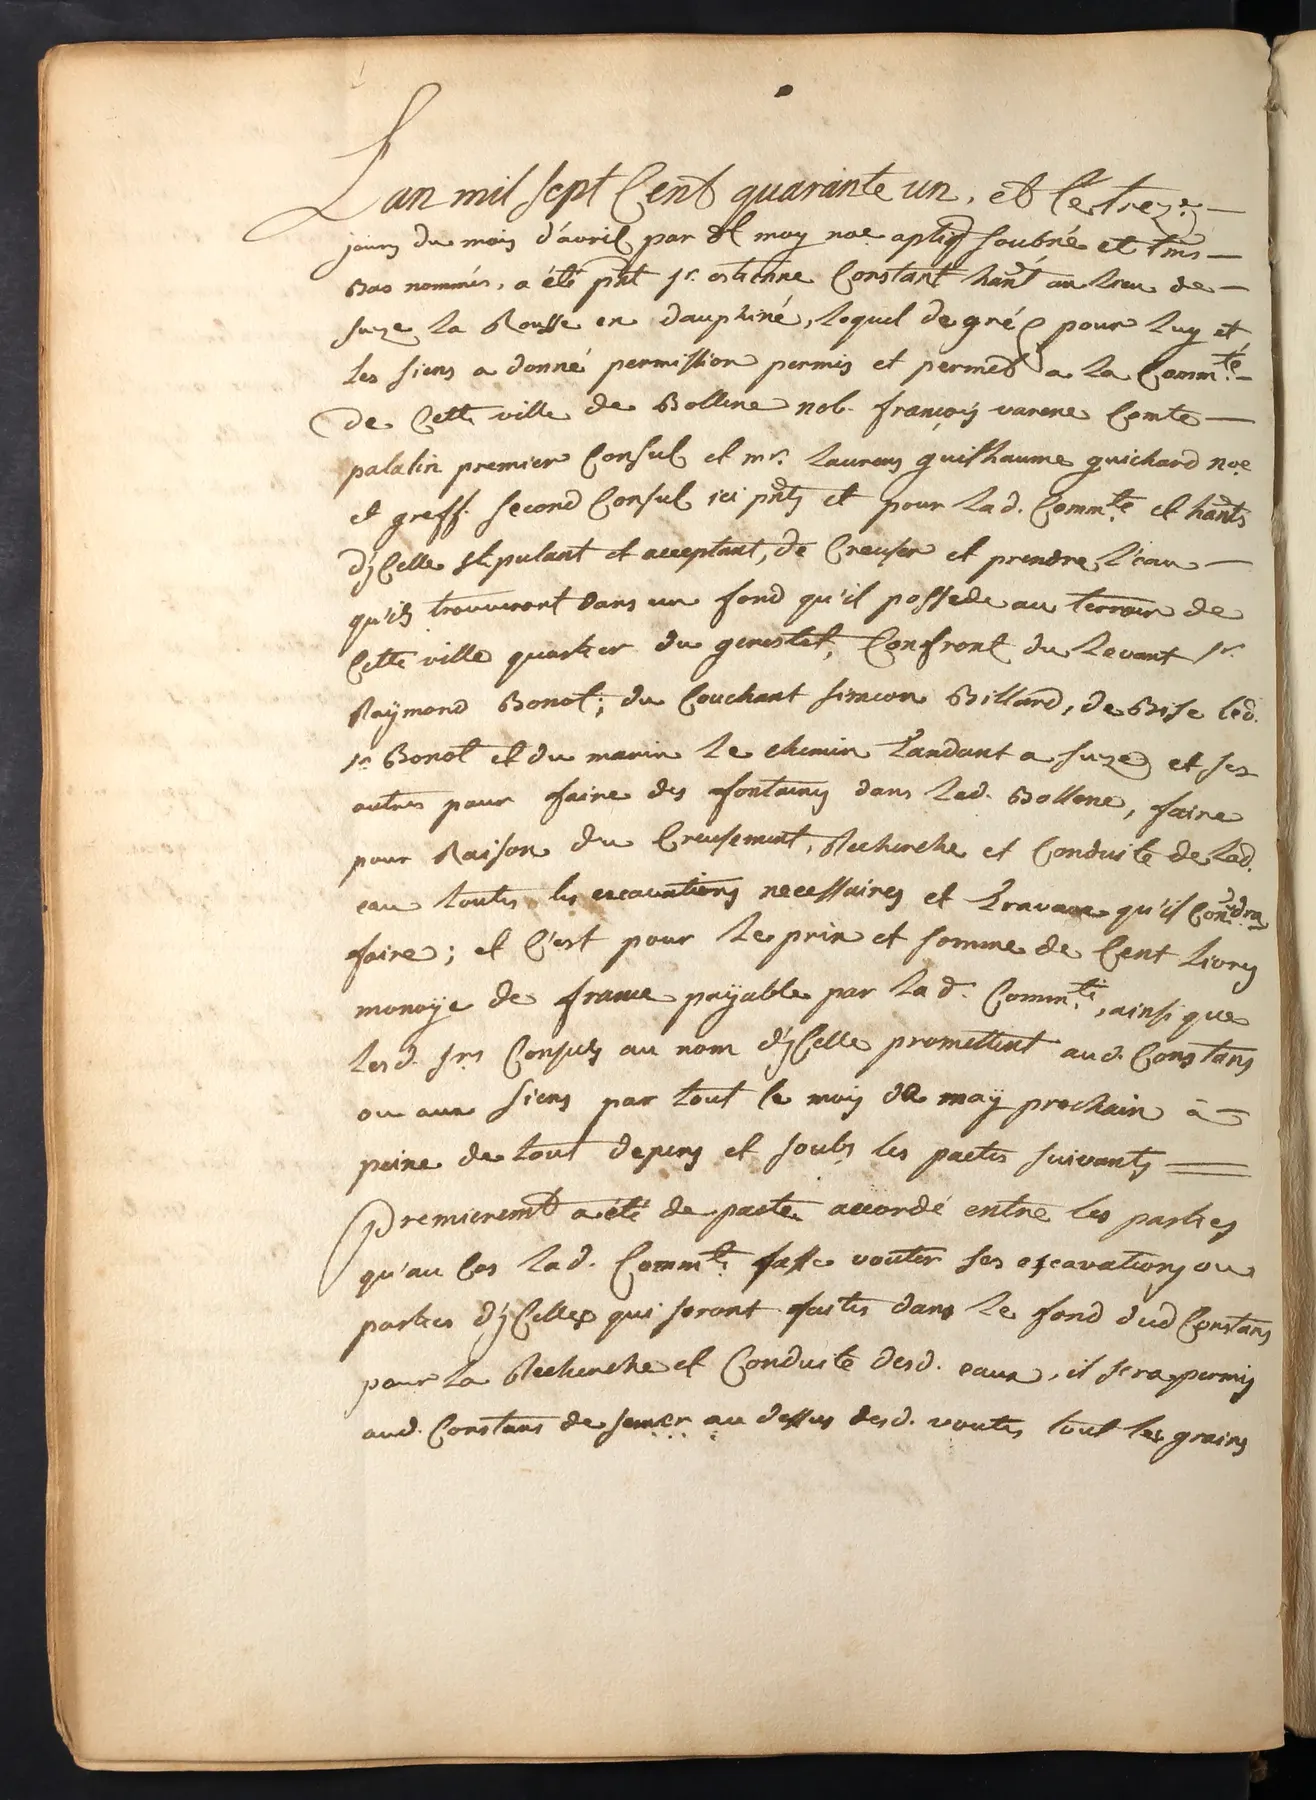 L'an mil sept Cent quarante un, et le treze.
jours du mois d'avril par d moy noe. aptiq soubné et tms
bas nommés, a été pnt sr. estienne Constant hant au lieu de
suze la Rousse en dauphiné, lequel de gré pour luy et
les siens a donné permission permis et permet a la Commté.
de Cette ville de Bollene nob. françois varene Comte
palatin premier Consul et mr. laurens guilhaume guichard noe
et greff. second Consul ici pnts et pour lad. Commté. et hants
d'jCelle stipulant et acceptant, de Creuser et prendre l'eau
qu'ils trouveront dans un fond qu'il possede au terroir de
Cette ville quartier du genestet, Confront du levant sr.
Raÿmond Bonot; du Couchant simeon Billard, de Bise led.
sr. Bonot et du marin le chemin tandant a suze et ses
autres pour faire des fontaines dans lad. Bollene, faire
pour Raison du Creusement, Recherche et Conduite de lad.
eau toutes les excavations necessaires et travaux qu'il Conviendra
faire; et C'est pour le prix et somme de Cent livres
monoÿe de france paÿable par lad. Commté., ainsi que
lesd. srs Consuls au nom d'jCelle promettent aud. Constans
ou aux siens par tout le mois de maÿ prochain à
peine de tout depens et soubs les pactes suivants
Premieremt a été de pacte accordé entre les parties
qu'au Cas lad. Commté. fasse vouter ses excavations ou
parties d'jCelles qui seront faites dans le fond dud Constans
pour la Recherche et Conduite desd. eaux, il sera permis
aud. Constans de semer au dessus desd. voutes tout les grains